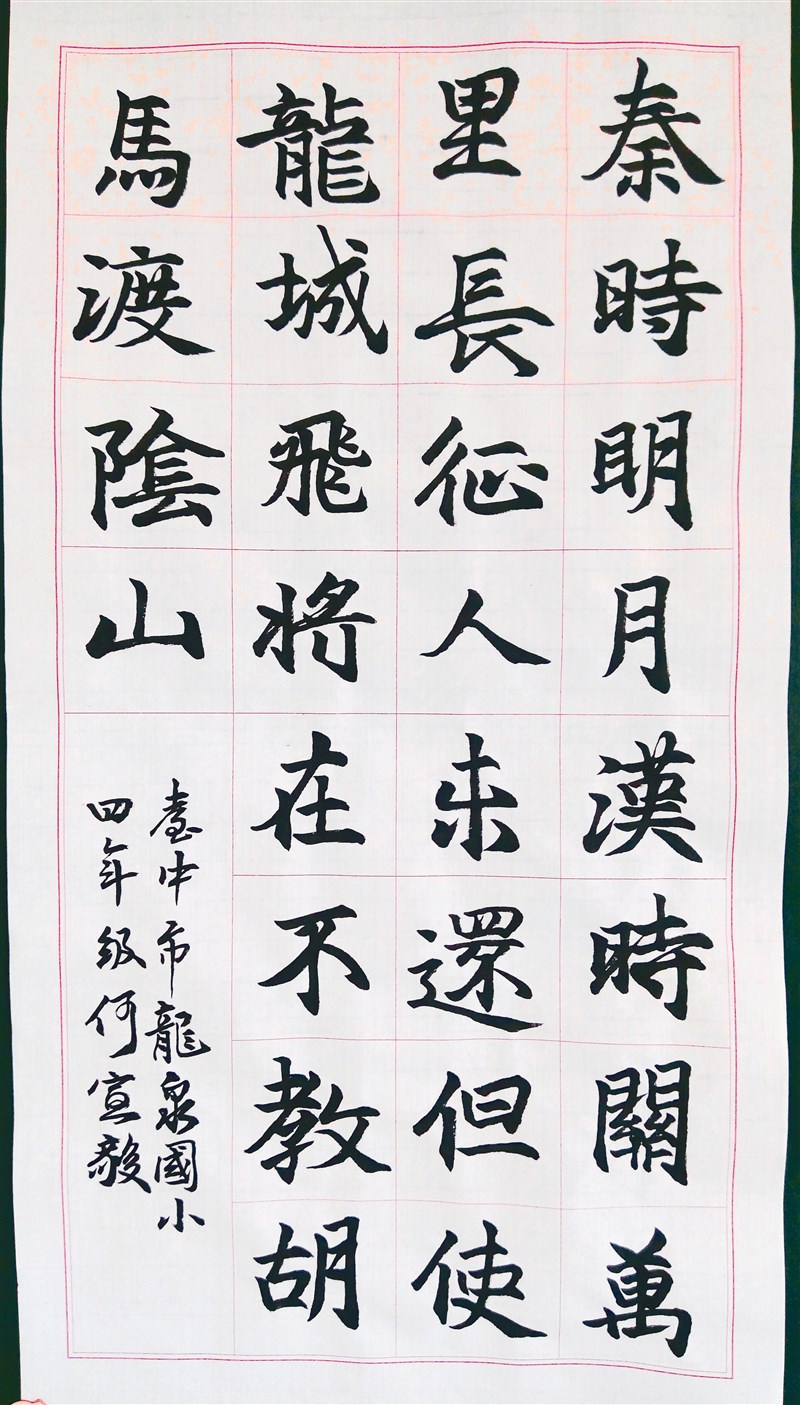 秦時明月漢時關萬
里長征人未還但使
龍城飛將在不教胡
馬渡陰山
臺中市龍泉國小
四年級何宣毅